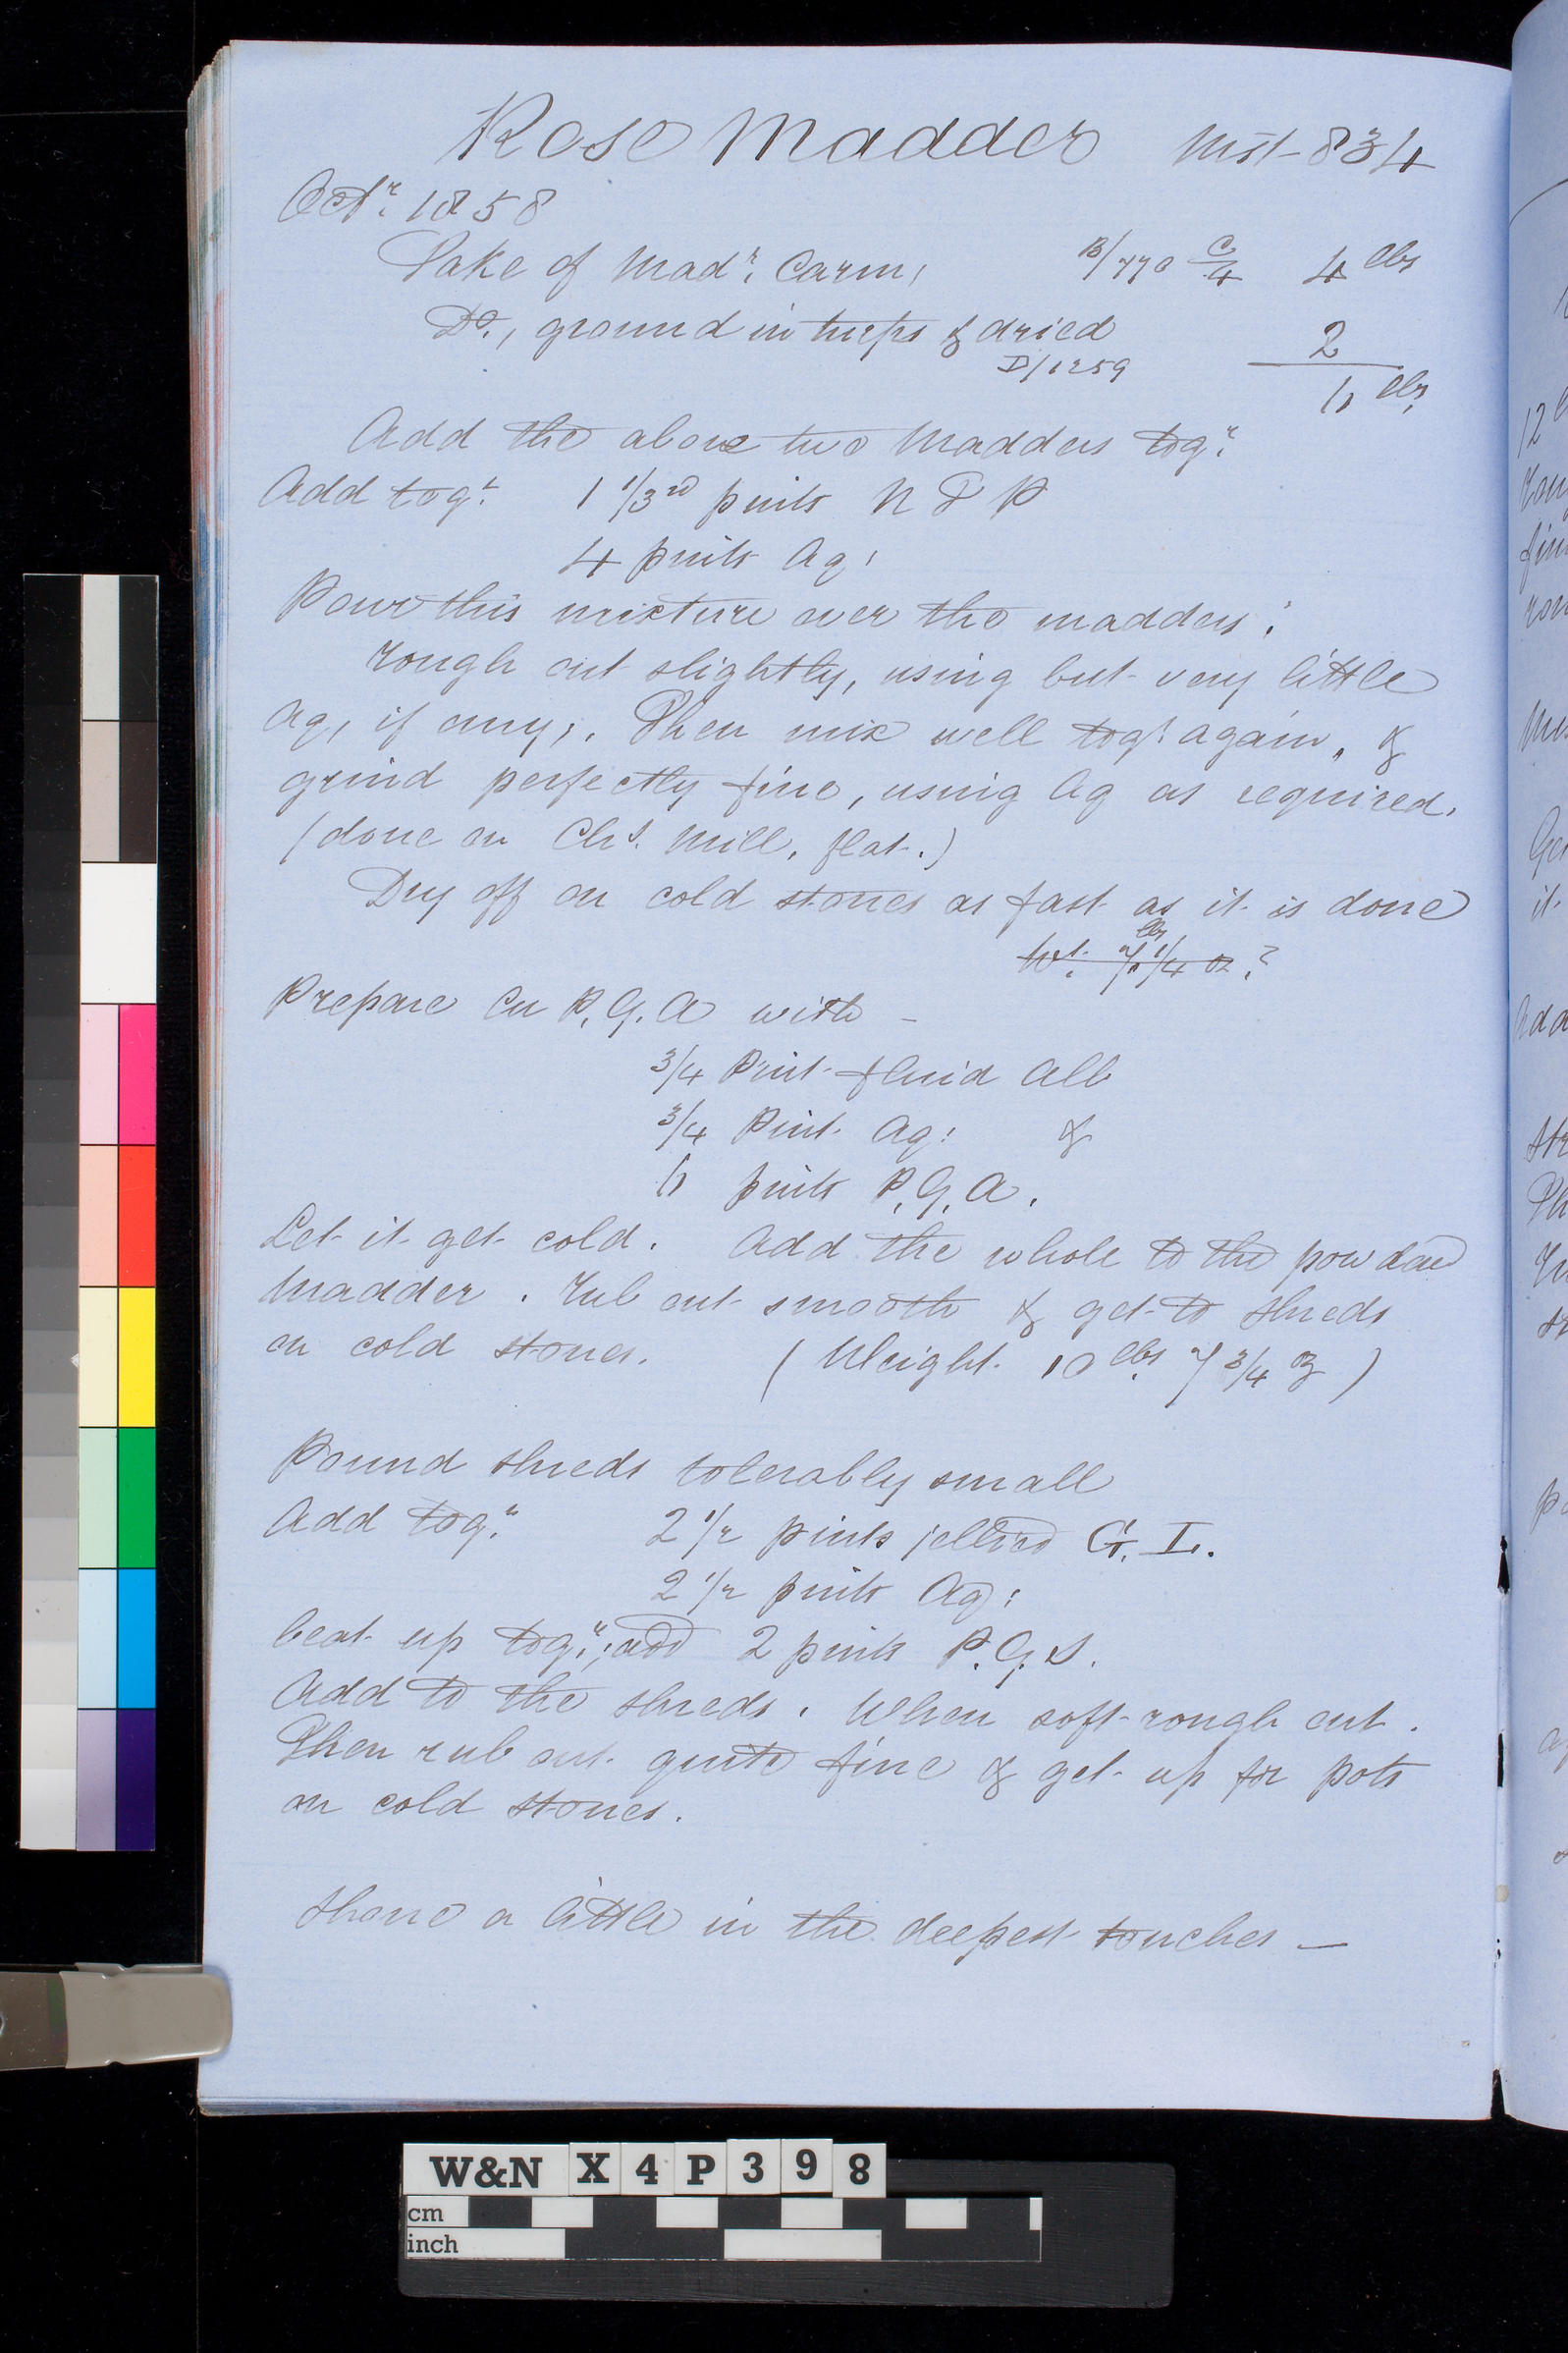 Rose Madder Mist 834
Octr. 1858
Take of Madr. Carm, B/770 C/4 4 lbs
Do., ground in turps & dried 2
D/1259
6 lbs,
Add the above two Madders togr.
Add togr. 1 1/3rd pints N P
4 pints Aq:
Pour this mixture over the madders:
Rough out slightly, using but very little
Aq, if any,. Then mix well togr. again, &
grind perfectly fine, using Aq as required.
(done on Chs. Mill, flat.)
Dry off on cold stones as fast as it is done
Wt. 7 lbs 1/4 oz?
Prepare P.G.A with –
3/4 Pint fluid Alb
3/4 Pint Aq: &
6 pints P.G.A.
Let it get cold. Add the whole to the powdered
Madder. Rub out smooth & get to shreds
on cold stones. (Weight 10 lbs. 7 3/4 oz)
Pound shreds tolerably small
Add togr. 2 1/2 pints jellied G. I.
2 1/2 pints Aq:
beat up togr.; add 2 pints P.G.S.
Add to the shreds. When soft rough out.
Then rub out quite fine & get up for pots
on cold stones.
Shone a little in the deepest touches —
W&N X 4 P 3 9 8
cm
inch